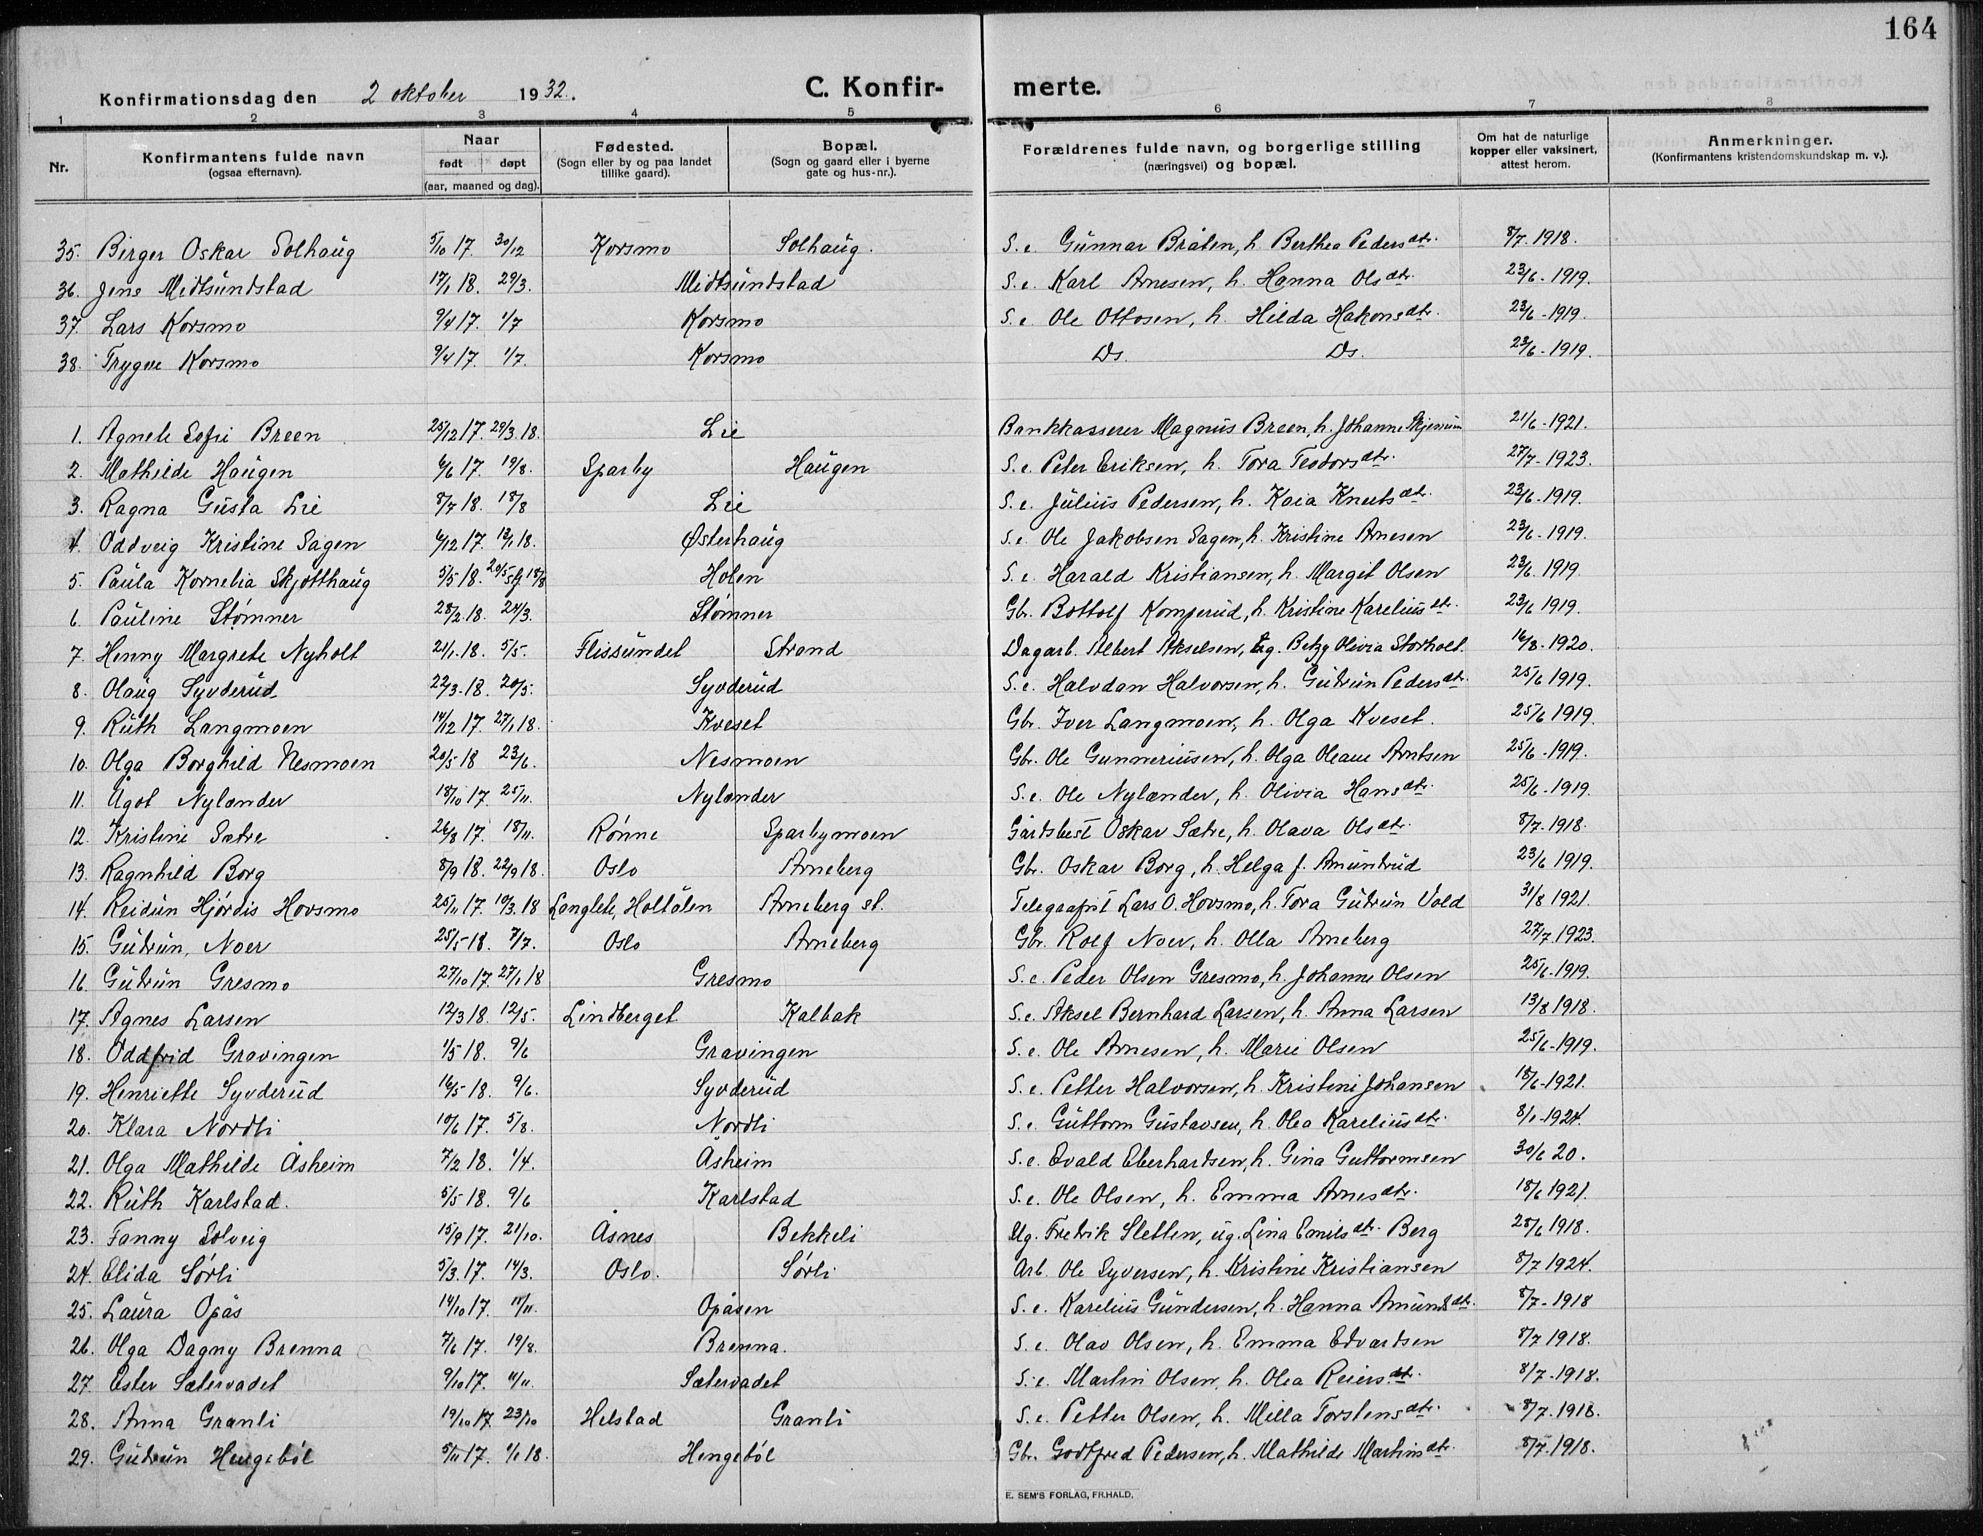 164
Konfirmationsdag den 2 oktober 1932. C. Konfir- merte.
1 2 3 4 5 6 7 8
Nr. Konfirmantens fulde navn (ogsaa efternavn). Naar født døpt (aar, maaned og dag). Fødested. (Sogn eller by og paa landet tillike gaard). Bopæl. (Sogn og gaard eller i byerne gate og hus-nr.). Forældrenes fulde navn, og borgerlige stilling (næringsvei) og bopæl. Om hat de naturlige kopper eller vaksinert, attest herom. Anmerkninger. (Konfirmantens kristendomskundskap m. v.).
35. Birger Oskar Solhaug 5/10 17. 30/12 Korsmo Solhaug. S. e. Gunnar Bråten, h. Berthea Pedersdtr. 8/7. 1918.
36. Jens Midtsundstad 17/1 18. 29/3. Midtsundstad S. e. Karl Arnesen, h. Hanna Olsdtr. 23/6 - 1919.
37 Lars Korsmo 9/4 17. 1/7 Korsmo S. e. Ole Ottosen, h. Hilda Hakonsdtr. 23/6 - 1919.
38. Trygve Korsmo 9/4 17. 1/7. Korsmo Ds. Ds. 23/6 - 1919.
1. Agnete Sofie Breen 25/12 17. 29/3 18. Lie Bankkasserer Magnus Breen, h. Johanne Skjerven 21/6 - 1921.
2. Mathilde Haugen 6/6 17. 19/8. Sparby Haugen S. e. Peter Eriksen, h. Tora Teodorsdtr. 27/7 - 1923.
3. Ragna Gusta Lie 8/7 18. 18/8 Lie S. e. Julius Pedersen, h. Kaia Knutsdtr. 23/6 - 1919.
4. Oddveig Kristine Sagen 6/12 17. 13/1 18. Østerhaug S. e. Ole Jakobsen Sagen, h. Kristine Arnesen 23/6 - 1919.
5. Paula Kornelia Skjotthaug 5/5 18. 20/5 18/8 Holen S. e. Harald Kristiansen, h. Margit Olsen 23/6. 1919
6. Pauline Stømner 28/2 18. 24/3. Stømner Gbr. Bottolf Komperud, h. Kristine Kareliusdtr. 23/6 1919.
7. Henny Margrete Nyholt 21/1 18. 5/5. Flissundet Strand Dagarb. Albert Akselsen, ug. Betzy Olivia Storholt. 16/8 - 1920.
8. Olaug Syvderud 22/3 18. 20/5. Syvderud S. e. Halvdan Halvorsen, h. Gudrun Pedersdtr. 25/6 1919.
9. Ruth Langmoen 14/12 17. 27/1 18. Kveset Gbr. Iver Langmoen, h. Olga Kveset. 25/6 1919.
10. Olga Borghild Nesmoen 20/5 18 23/6. Nesmoen Gbr. Ole Gunneriusen, h. Olga Oleane Arntsen 25/6 - 1919.
11. Ågot Nylænder 18/10 17. 25/11. Nylænder S. e. Ole Nylænder, h. Olivia Hansdtr. 25/6 - 1919.
12. Kristine Sætre 26/8 17. 18/11. Rønne Sparbymoen Gårdsbest. Oskar Sætre, h. Olava Olsdtr. 8/7 - 1918.
13. Ragnhild Borg 8/9 18. 22/9 18. Oslo Arneberg Gbr. Oskar Borg, h. Helga f. Amundrud 23/6 1919.
14. Reidun Hjørdis Hovsmo 25/11 17. 10/3. 18 Langlete, Holtålen Arneberg st. Telegrafist Lars O. Hovsmo, h. Tora Gudrun Vold 31/8 1921.
15. Gudrun, Noer 25/5 18. 7/7. Oslo Arneberg Gbr. Rolf Noer, h. Olla Arneberg 27/7 1923.
16. Gudrun Gresmo 27/10 17. 27/1 18 Gresmo S. e. Peder Olsen Gresmo, h. Johanne Olsen 25/6 - 1919.
17. Agnes Larsen 12/3 18. 12/5. Lindberget Kalbak S. e. Aksel Bernhard Larsen, h. Anna Larsen 13/8 1918.
18. Oddfrid Gravingen 1/5 18. 9/6 Gravingen S. e. Ole Arnesen, h. Marie Olsen 25/6 - 1919.
19. Henriette Syvderud 16/5 18. 9/6. Syvderud S. e. Petter Halvorsen, h. Kristine Johansen 18/6 - 1921.
20. Klara Nordli 10/6 17. 5/8. Nordli S. e. Guttorm Gustavsen, h. Olea Kareliusdtr. 8/1 - 1924.
21. Olga Mathilde Åsheim 7/2 18. 1/4. Åsheim S. e. Evald Eberhardsen, h. Gina Guttormsen 30/6 20.
22. Ruth Karlstad. 5/5 18. 9/6 Karlstad S. e. Ole Olsen, h. Emma Arnesdtr. 18/6 1921.
23. Fanny Solveig 15/9 17. 21/10. Åsnes Bekkeli Ug. Fredrik Sletten, ug. Lina Emilsdtr. Berg 28/6 1918.
24. Elida Sørli 5/3. 17. 14/3. Oslo. Sørli Arb. Ole Syversen, h. Kristine Kristiansen 8/7 1924.
25. Laura Opås 14/10 17. 18/11. Opåsen S. e. Karelius Gundersen, h. Hanna Amundsdtr. 8/7 - 1918
26. Olga Dagny Brenna 7/6 17. 19/8. Brenna. S. e. Olav Olsen, h. Emma Edvardsen 8/7 1918.
27. Ester Sætervadet 9/10 17. 11/11. Sætervadet S. e. Martin Olsen, h. Olea Reiersdtr. 8/7 - 1918.
28. Anna Granli 19/10 17 23/10 Helstad Granli S. e. Petter Olsen, h. Milla Torstensdtr. 8/7 - 1918.
29. Gudrun Hengebøl 5/11 17. 1/1 18. Hengebøl Gbr. Godtfred Pedersen, h. Mathilde Martinsdtr. 8/7 - 1918.
E. SEM'S FORLAG, FR.HALD.